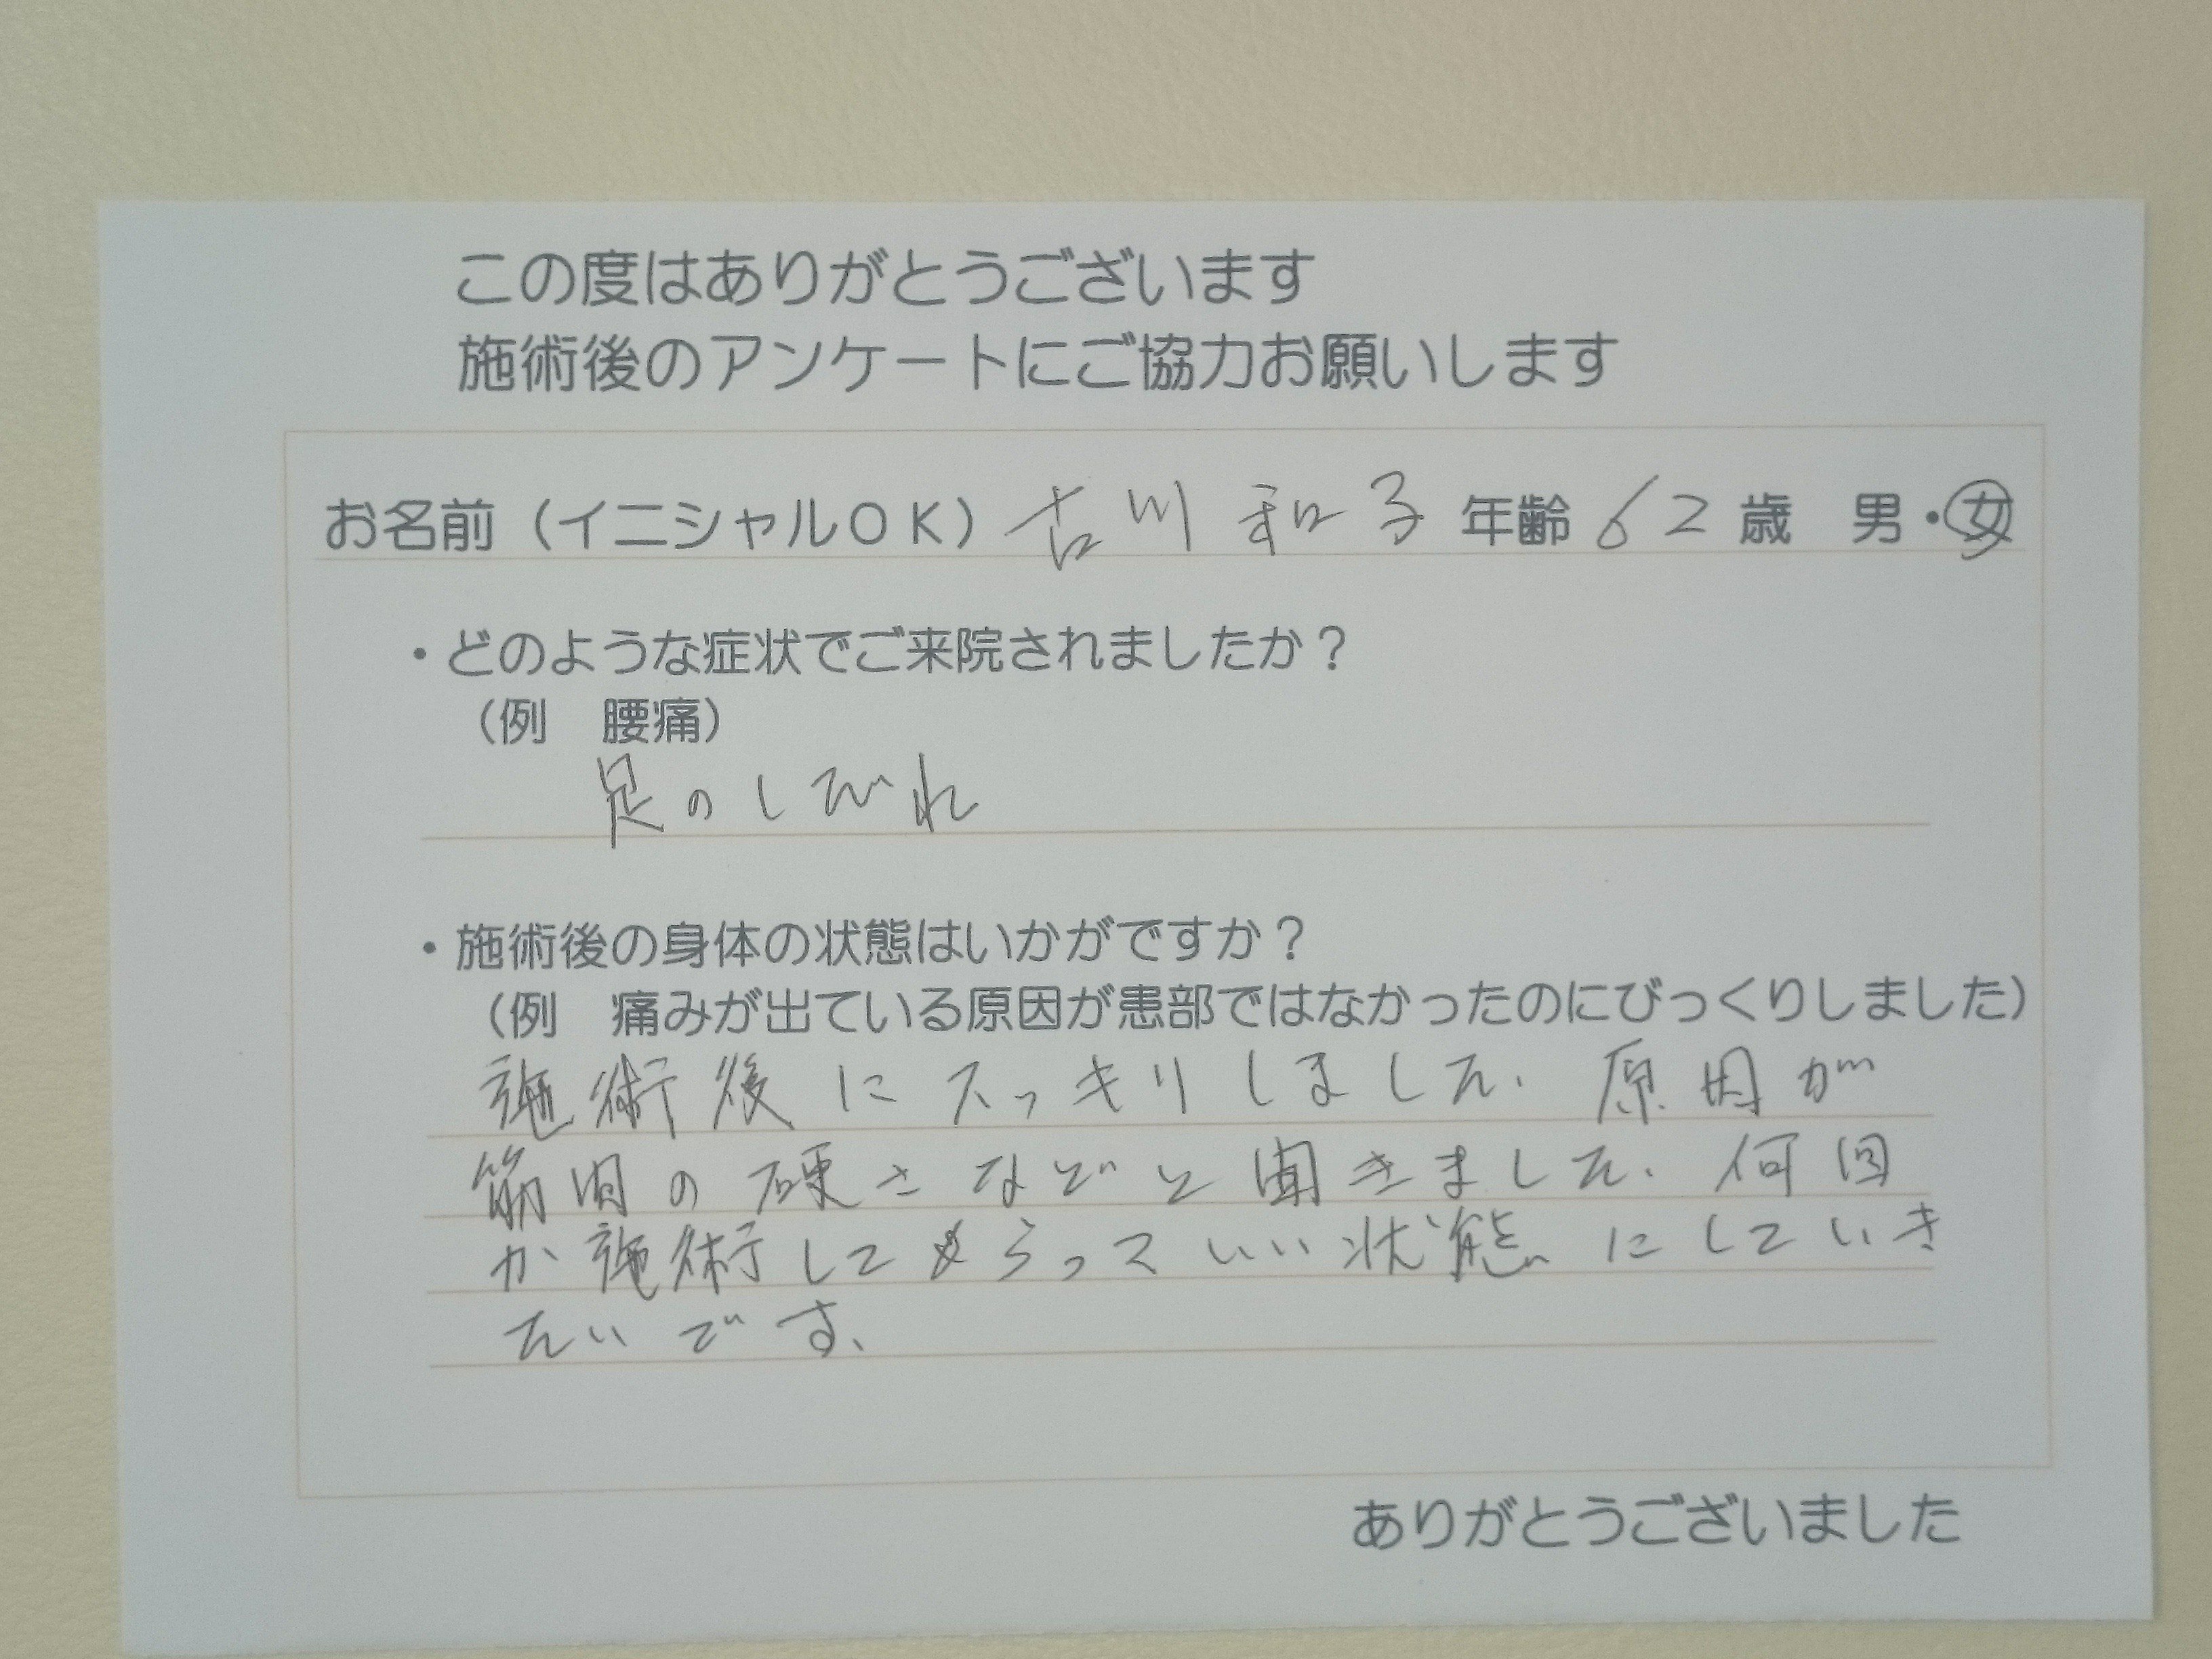 この度はありがとうございます
施術後のアンケートにご協力お願いします
お名前（イニシャルＯＫ）古川和子 年齢 62 歳 男・女
・どのような症状でご来院されましたか？
（例　腰痛）
足のしびれ
・施術後の身体の状態はいかがですか？
（例　痛みが出ている原因が患部ではなかったのにびっくりしました）
施術後にスッキリしました。原因が
筋肉の硬さなどと聞きました。何回
か施術してもらっていい状態にしていき
たいです。
ありがとうございました